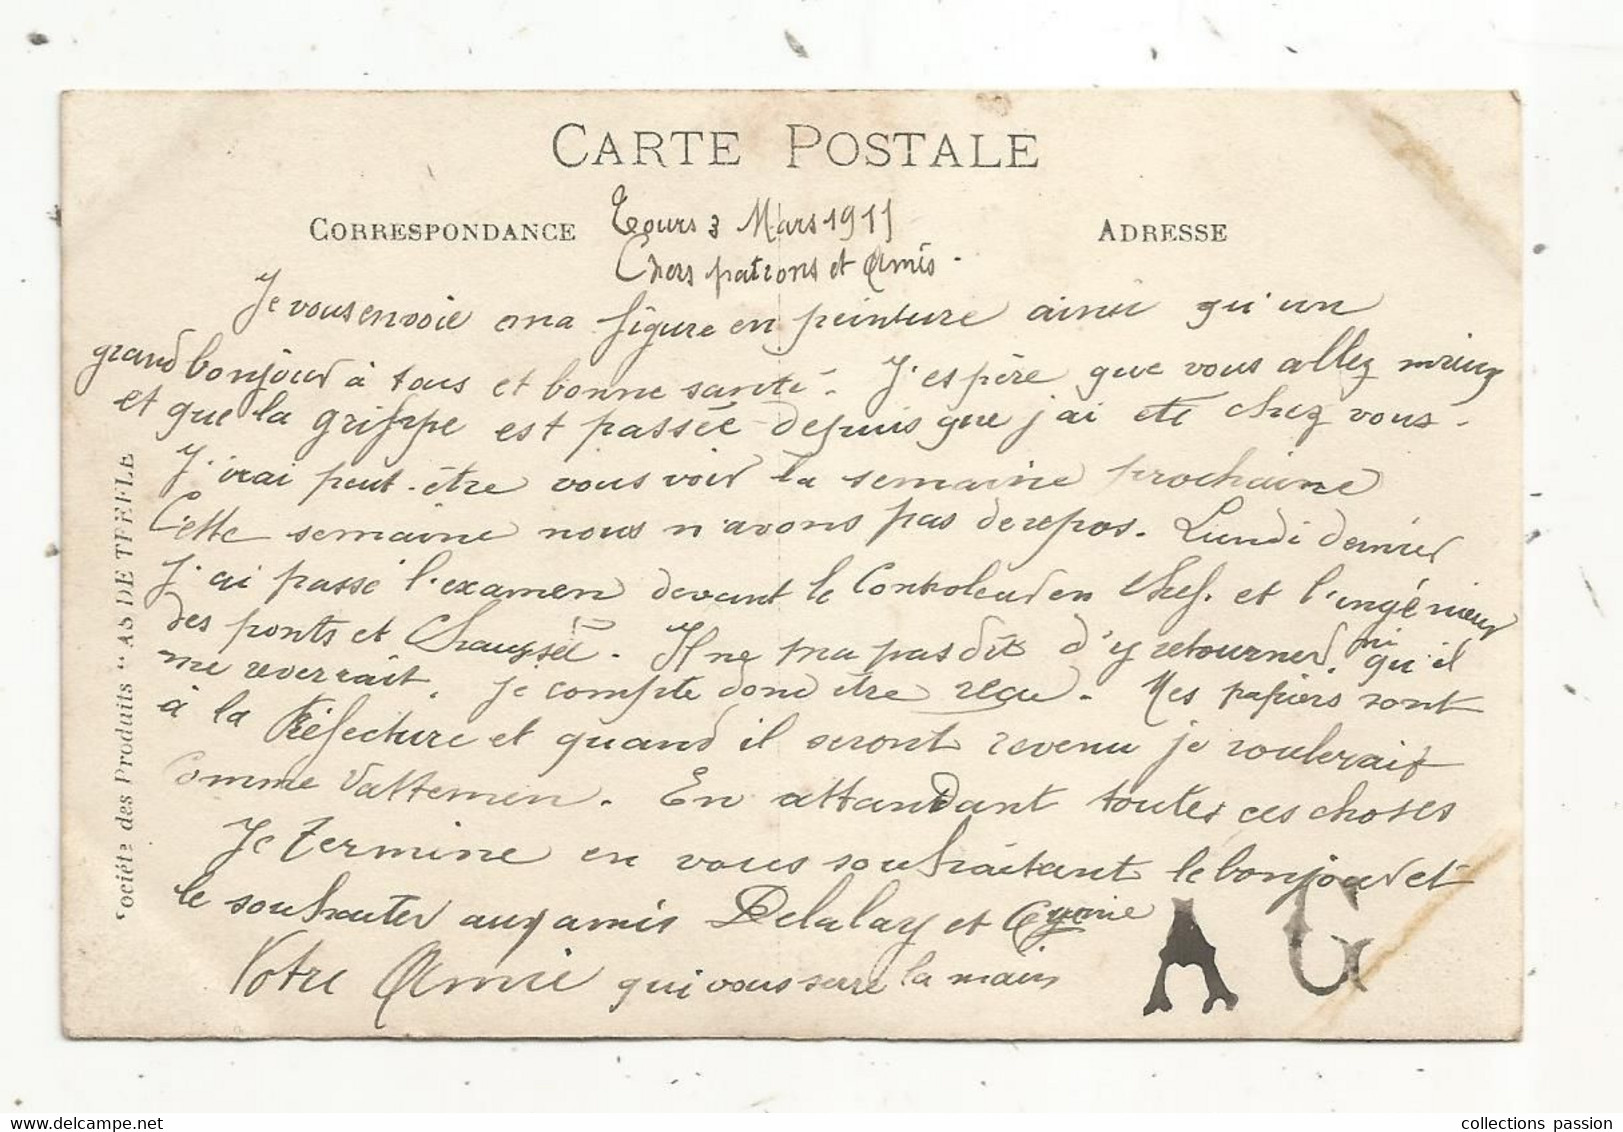 CARTE POSTALE
CORRESPONDANCE
ADRESSE
Tours 3 Mars 1911
Chers patrons et Amis -
Je vous envoie ma figure en peinture ainsi qu'un
grand bonjour à tous et bonne santé. J'espère que vous allez mieux
et que la grippe est passée depuis que j'ai eté chez vous.
J'irai peut-être vous voir la semaine prochaine
Cette semaine nous n'avons pas de repos. Lundi dernier
J'ai passé l'examen devant le Controleur en Chef. et l'ingénieur
des ponts et Chaussée. Il ne m'a pas dit d'y retourner, ni qu'il
me reverrait. je compte donc être reçu. Mes papiers sont
à la Préfecture et quand il seront revenu je roulerait
Comme Vattemen. En attandant toutes ces choses
Je termine en vous souhaitant le bonjour et
le souhaiter aux amis Delalay et
Votre Amie qui vous serre la main
A G
Société des Produits "AS DE TREFLE
collections passion